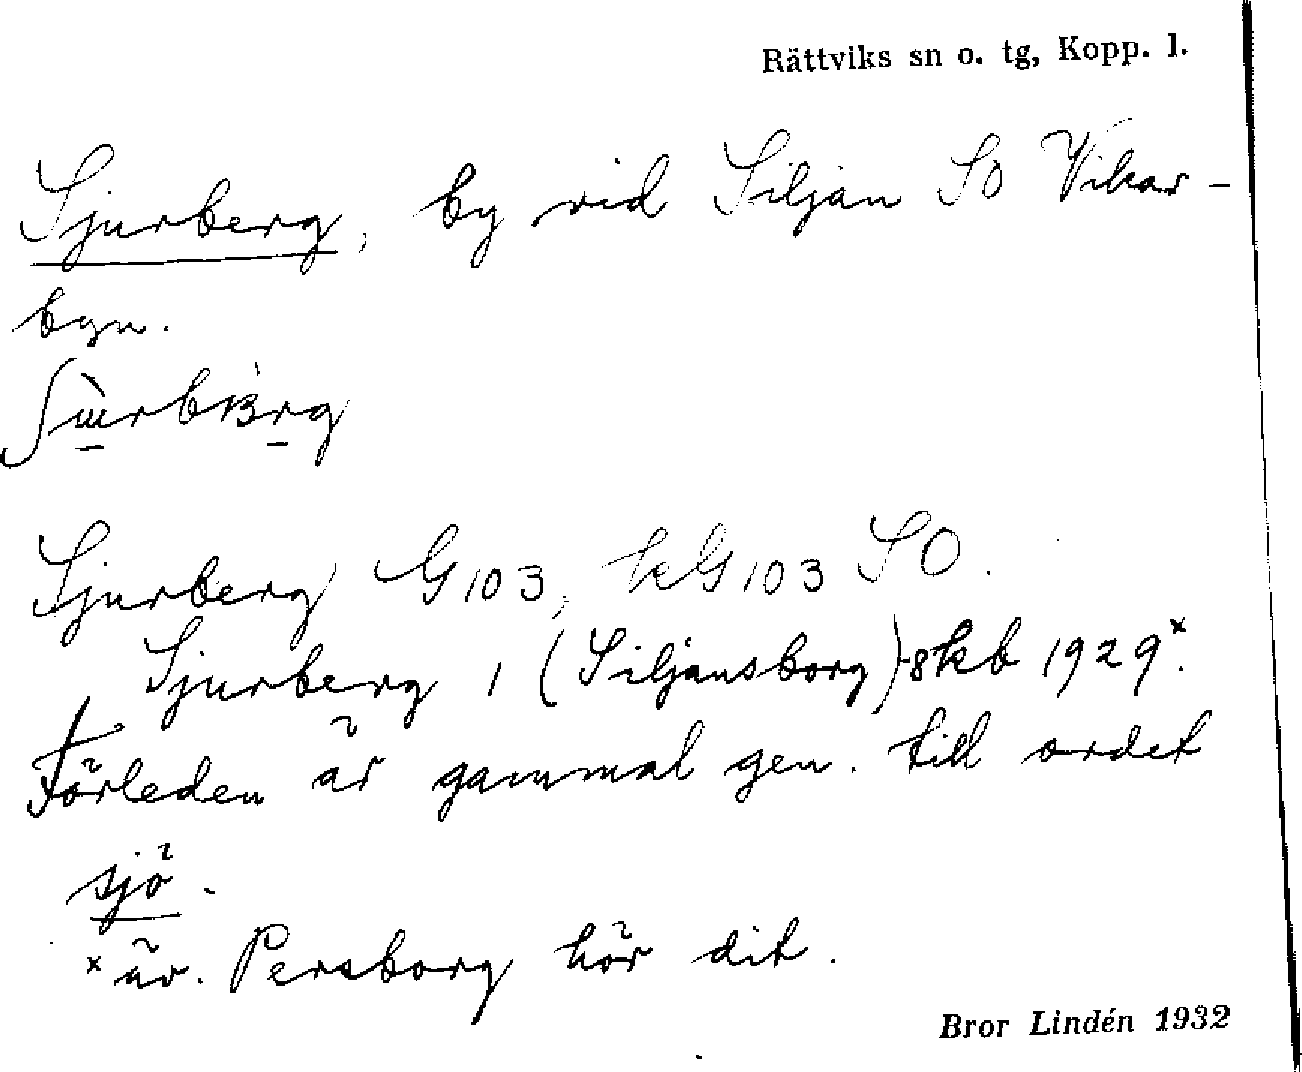 Rättviks sn o. tg, Kopp. l.
Sjurberg, by vid Siljan SO Vikar-
byn.
Sjurberg G103, kG103 SO.
Sjurberg 1 (Siljansborg) skb 1929ˣ.
Förleden är gammal gen. till ordet
sjö.
ˣ äv. Persborg hör dit.
Bror Lindén 1932